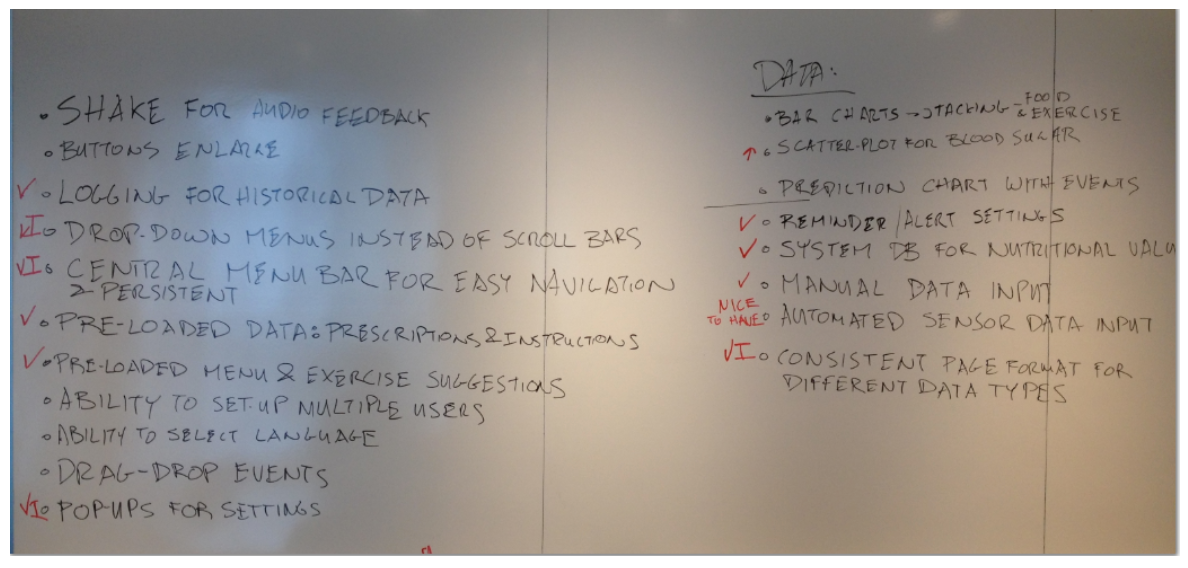 • SHAKE FOR AUDIO FEEDBACK
• BUTTONS ENLARGE
✓ • LOGGING FOR HISTORICAL DATA
✓I • DROP-DOWN MENUS INSTEAD OF SCROLL BARS
✓I • CENTRAL MENU BAR FOR EASY NAVIGATION
& PERSISTENT
✓ • PRE-LOADED DATA: PRESCRIPTIONS & INSTRUCTIONS
✓ • PRE-LOADED MENU & EXERCISE SUGGESTIONS
• ABILITY TO SET-UP MULTIPLE USERS
• ABILITY TO SELECT LANGUAGE
• DRAG-DROP EVENTS
✓I • POP-UPS FOR SETTINGS
DATA:
• BAR CHARTS → STACKING - FOOD & EXERCISE
↑ • SCATTER-PLOT FOR BLOOD SUGAR
• PREDICTION CHART WITH EVENTS
✓ • REMINDER/ALERT SETTINGS
✓ • SYSTEM DB FOR NUTRITIONAL VALU
✓ • MANUAL DATA INPUT
NICE TO HAVE • AUTOMATED SENSOR DATA INPUT
✓I • CONSISTENT PAGE FORMAT FOR
DIFFERENT DATA TYPES